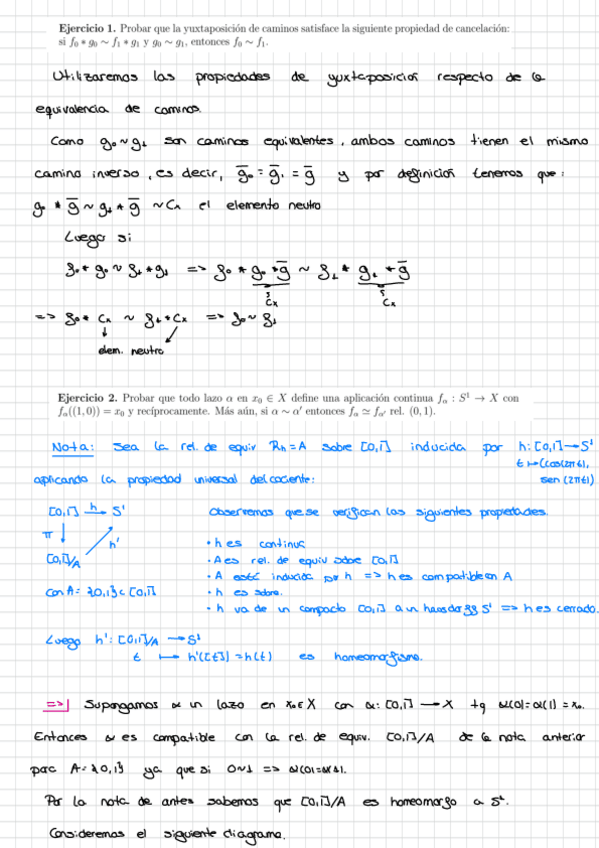 Ejercicio 1. Probar que la yuxtaposición de caminos satisface la siguiente propiedad de cancelación:
si f₀ * g₀ ∼ f₁ * g₁ y g₀ ∼ g₁, entonces f₀ ∼ f₁.
Utilizaremos las propiedades de yuxtaposición respecto de la
equivalencia de caminos.
Como g₀ ∼ g₁ son caminos equivalentes, ambos caminos tienen el mismo
camino inverso, es decir, g̅₀ = g̅₁ = g̅ y por definición tenemos que:
g₀ * g̅ ∼ g₁ * g̅ ∼ Cx el elemento neutro
Luego si
f₀ * g₀ ∼ f₁ * g₁ => f₀ * g₀ * g̅ ∼ f₁ * g₁ * g̅
Cx Cx
=> f₀ * Cx ∼ f₁ * Cx => f₀ ∼ f₁
elem. neutro
Ejercicio 2. Probar que todo lazo α en x₀ ∈ X define una aplicación continua fα : S¹ → X con
fα((1, 0)) = x₀ y recíprocamente. Más aún, si α ∼ α′ entonces fα ≃ fα′ rel. (0, 1).
Nota: Sea la rel. de equiv Rh = A sobre [0,1] inducida por h: [0,1] → S¹
t ↦ (cos(2πt),
aplicando la propiedad universal del cociente: sen (2πt))
[0,1] h→ S¹ Observemos que se verifican las siguientes propiedades.
π h' · h es continua
[0,1]/A · A es rel. de equiv sobre [0,1]
con A = {0,1} ⊂ [0,1] · A está inducida por h => h es compatible con A
· h es sobre.
· h va de un compacto [0,1] a un hausdorff S¹ => h es cerrado.
Luego h': [0,1]/A → S¹
t ↦ h'([t]) = h(t) es homeomorfismo.
=>| Supongamos α un lazo en x₀ ∈ X con α: [0,1] → X tq α(0) = α(1) = x₀.
Entonces α es compatible con la rel. de equiv. [0,1]/A de la nota anterior
para A = {0,1} ya que si 0∼1 => α(0) = α(1).
Por la nota de antes sabemos que [0,1]/A es homeomorfo a S¹.
Consideremos el siguiente diagrama.